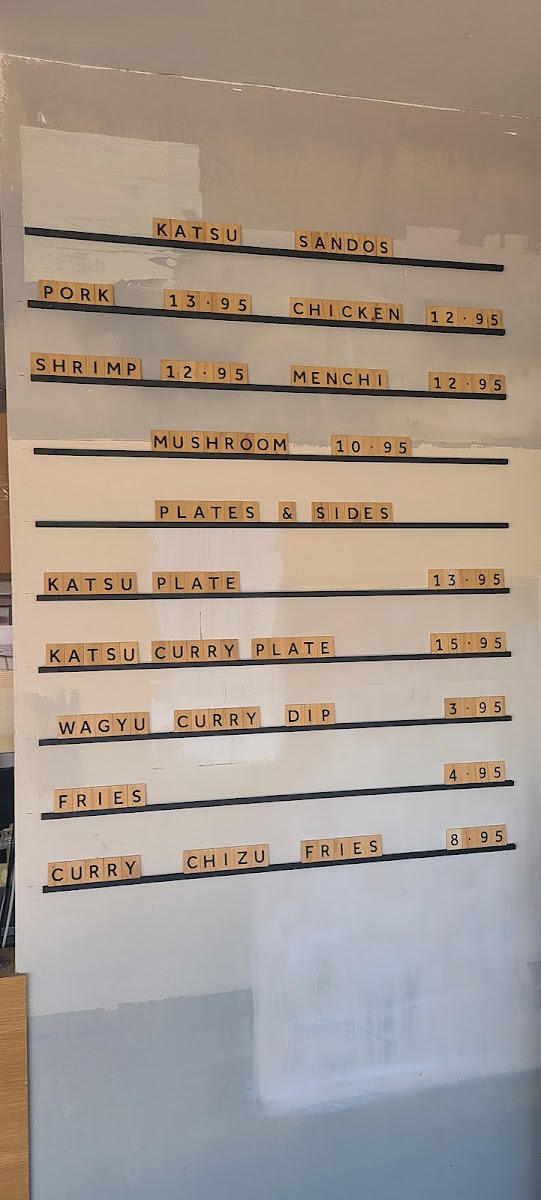 KATSU SANDOS
PORK 13·95 CHICKEN 12·95
SHRIMP 12·95 MENCHI 12·95
MUSHROOM 10·95
PLATES & SIDES
KATSU PLATE 13·95
KATSU CURRY PLATE 15·95
WAGYU CURRY DIP 3·95
FRIES 4·95
CURRY CHIZU FRIES 8·95